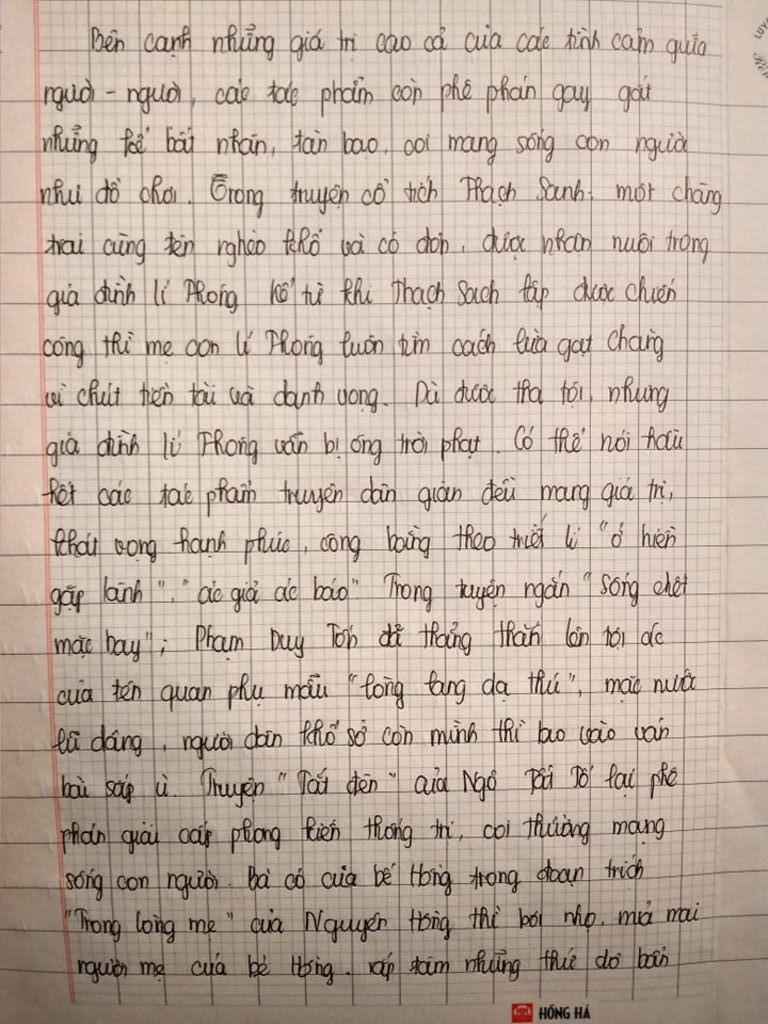 Bên cạnh những giá trị cao cả của các tình cảm giữa
người - người, các tác phẩm còn phê phán gay gắt
những kẻ bất nhân, tàn bạo, coi mạng sống con người
như đồ chơi. Trong truyện cổ tích Thạch Sanh, một chàng
trai cùng tên nghèo khổ và cô đơn, được nhận nuôi trong
gia đình lí Thông kể từ khi Thạch Sach lập được chiến
công thì mẹ con lí Thông luôn tìm cách lừa gạt chàng
vì chút tiền tài và danh vọng. Dù được tha tội, nhưng
gia đình lí Thông vẫn bị ông trời phạt. Có thể nói hầu
hết các tác phẩm truyện dân gian đều mang giá trị,
khát vọng hạnh phúc, công bằng theo triết lí "ở hiền
gặp lành", "ác giả ác báo". Trong tuyện ngắn "Sống chết
mặc bay"; Phạm Duy Tốn đã thẳng thắn lên tội ác
của tên quan phụ mẫu "lòng lang dạ thú", mặc nước
lũ dâng, người dân khổ sở còn mình thì lao vào ván
bài sấp ù. Truyện "Tắt đèn" của Ngô Tất Tố lại phê
phán giai cấp phong kiến thống trị, coi thường mạng
sống con người. Bà cô của bé Hồng trong đoạn trích
"Trong lòng mẹ" của Nguyên Hồng thì bôi nhọ, mỉa mai
người mẹ của bé Hồng, rắp tâm những thứ dơ bẩn
HỒNG HÀ